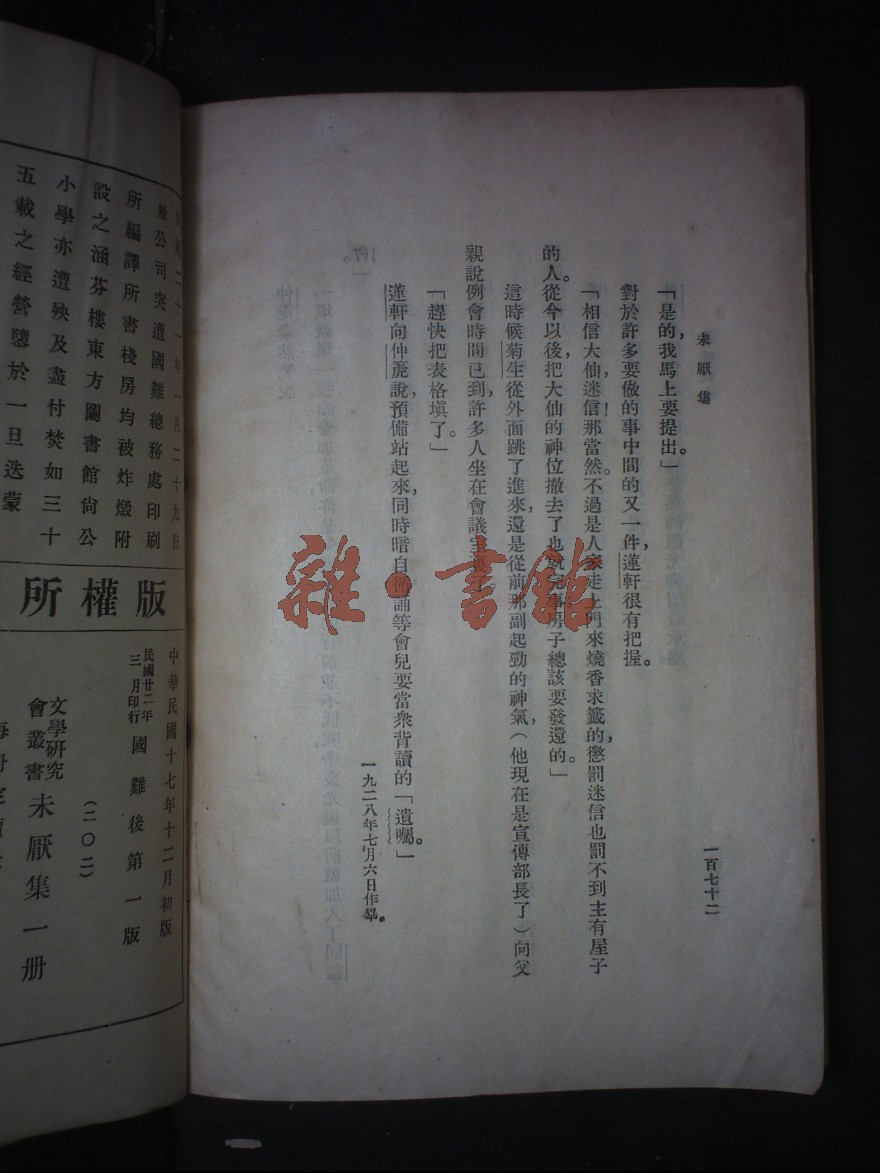 未厭集
一百七十二
「是的，我馬上要提出。」
對於許多要做的事中間的又一件，蓮軒很有把握。
「相信大仙，迷信，那當然。不過是人家走上門來燒香求籤的，懲罰迷信也罰不到主有屋子
的人。從今以後把大仙的神位撤去了，也就完事，房子總該要發還的。」
這時候菊生從外面跳了進來，還是從前那副起勁的神氣，（他現在是宣傳部長了）向父
親說例會時間已到，許多人坐在會議室裏了。
「趕快把表格填了。」
蓮軒向仲麃說，預備站起來，同時暗自衖誦等會兒要當衆背讀的「遺囑。」
一九二八年七月六日作畢。
雜·書館
二十一年一月二十九日
公司突遭國難總務處印刷
所編譯所書棧房均被炸燬附
設之涵芬樓東方圖書館尙公
小學亦遭殃及盡付焚如三十
五載之經營隳於一旦迭蒙
版權所
中華民國十七年十二月初版
民國廿二年三月印行
國難後第一版
（二〇二）
文學研究會叢書
未厭集一册